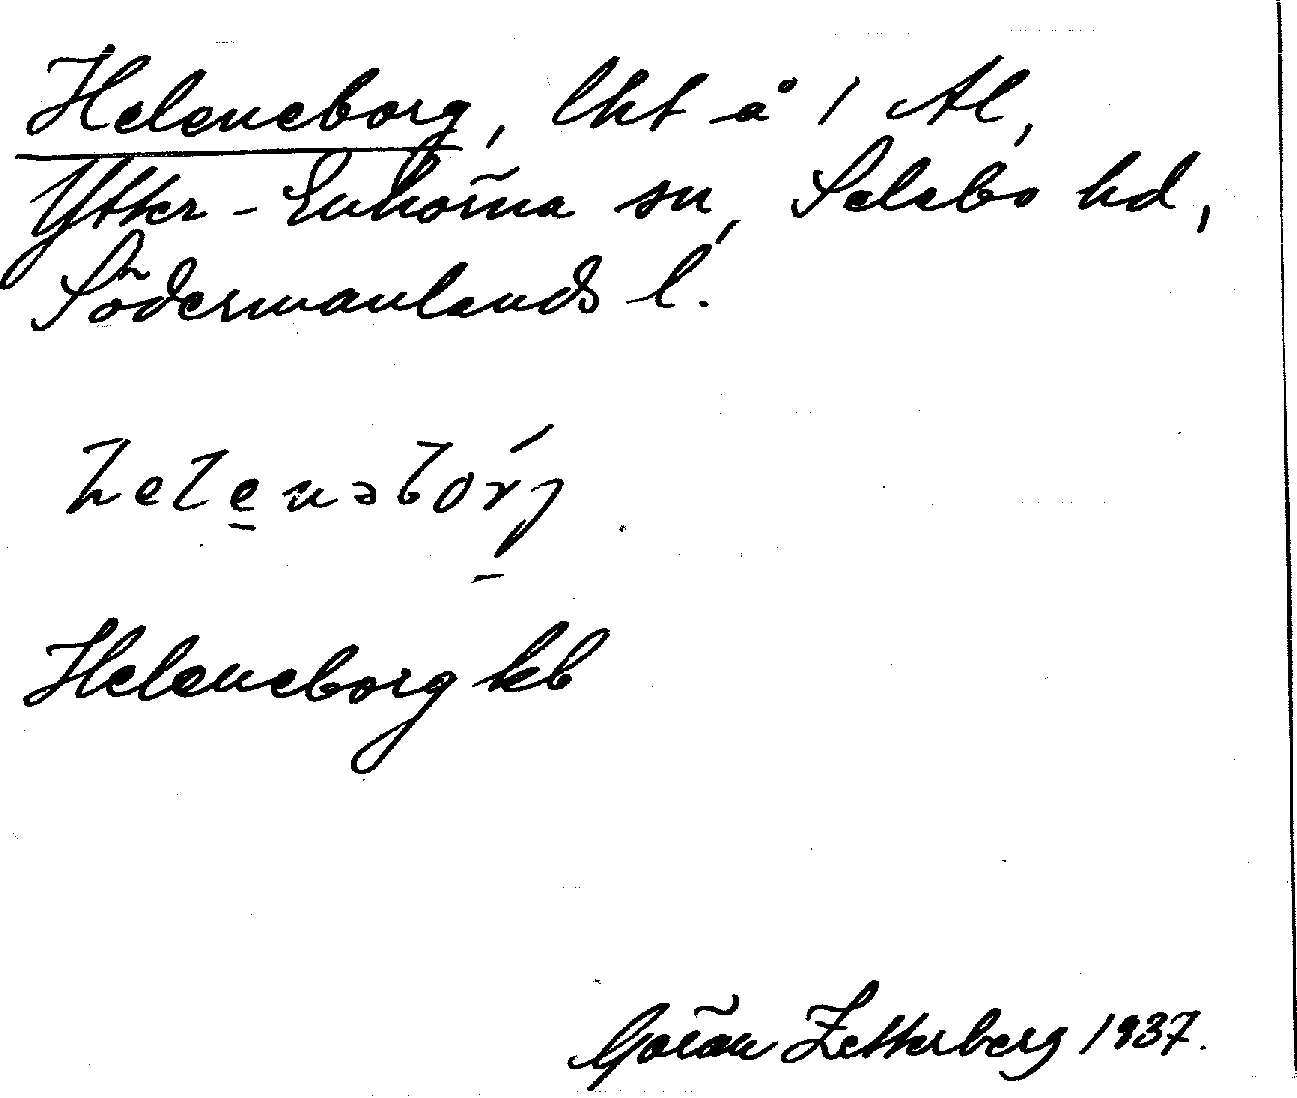 Heleneborg, lht å 1 Al,
Ytter-Enhörna sn, Selebo hd,
Södermanlands l.
helenəbórj
Heleneborg kb
Göran Zetterberg 1937.